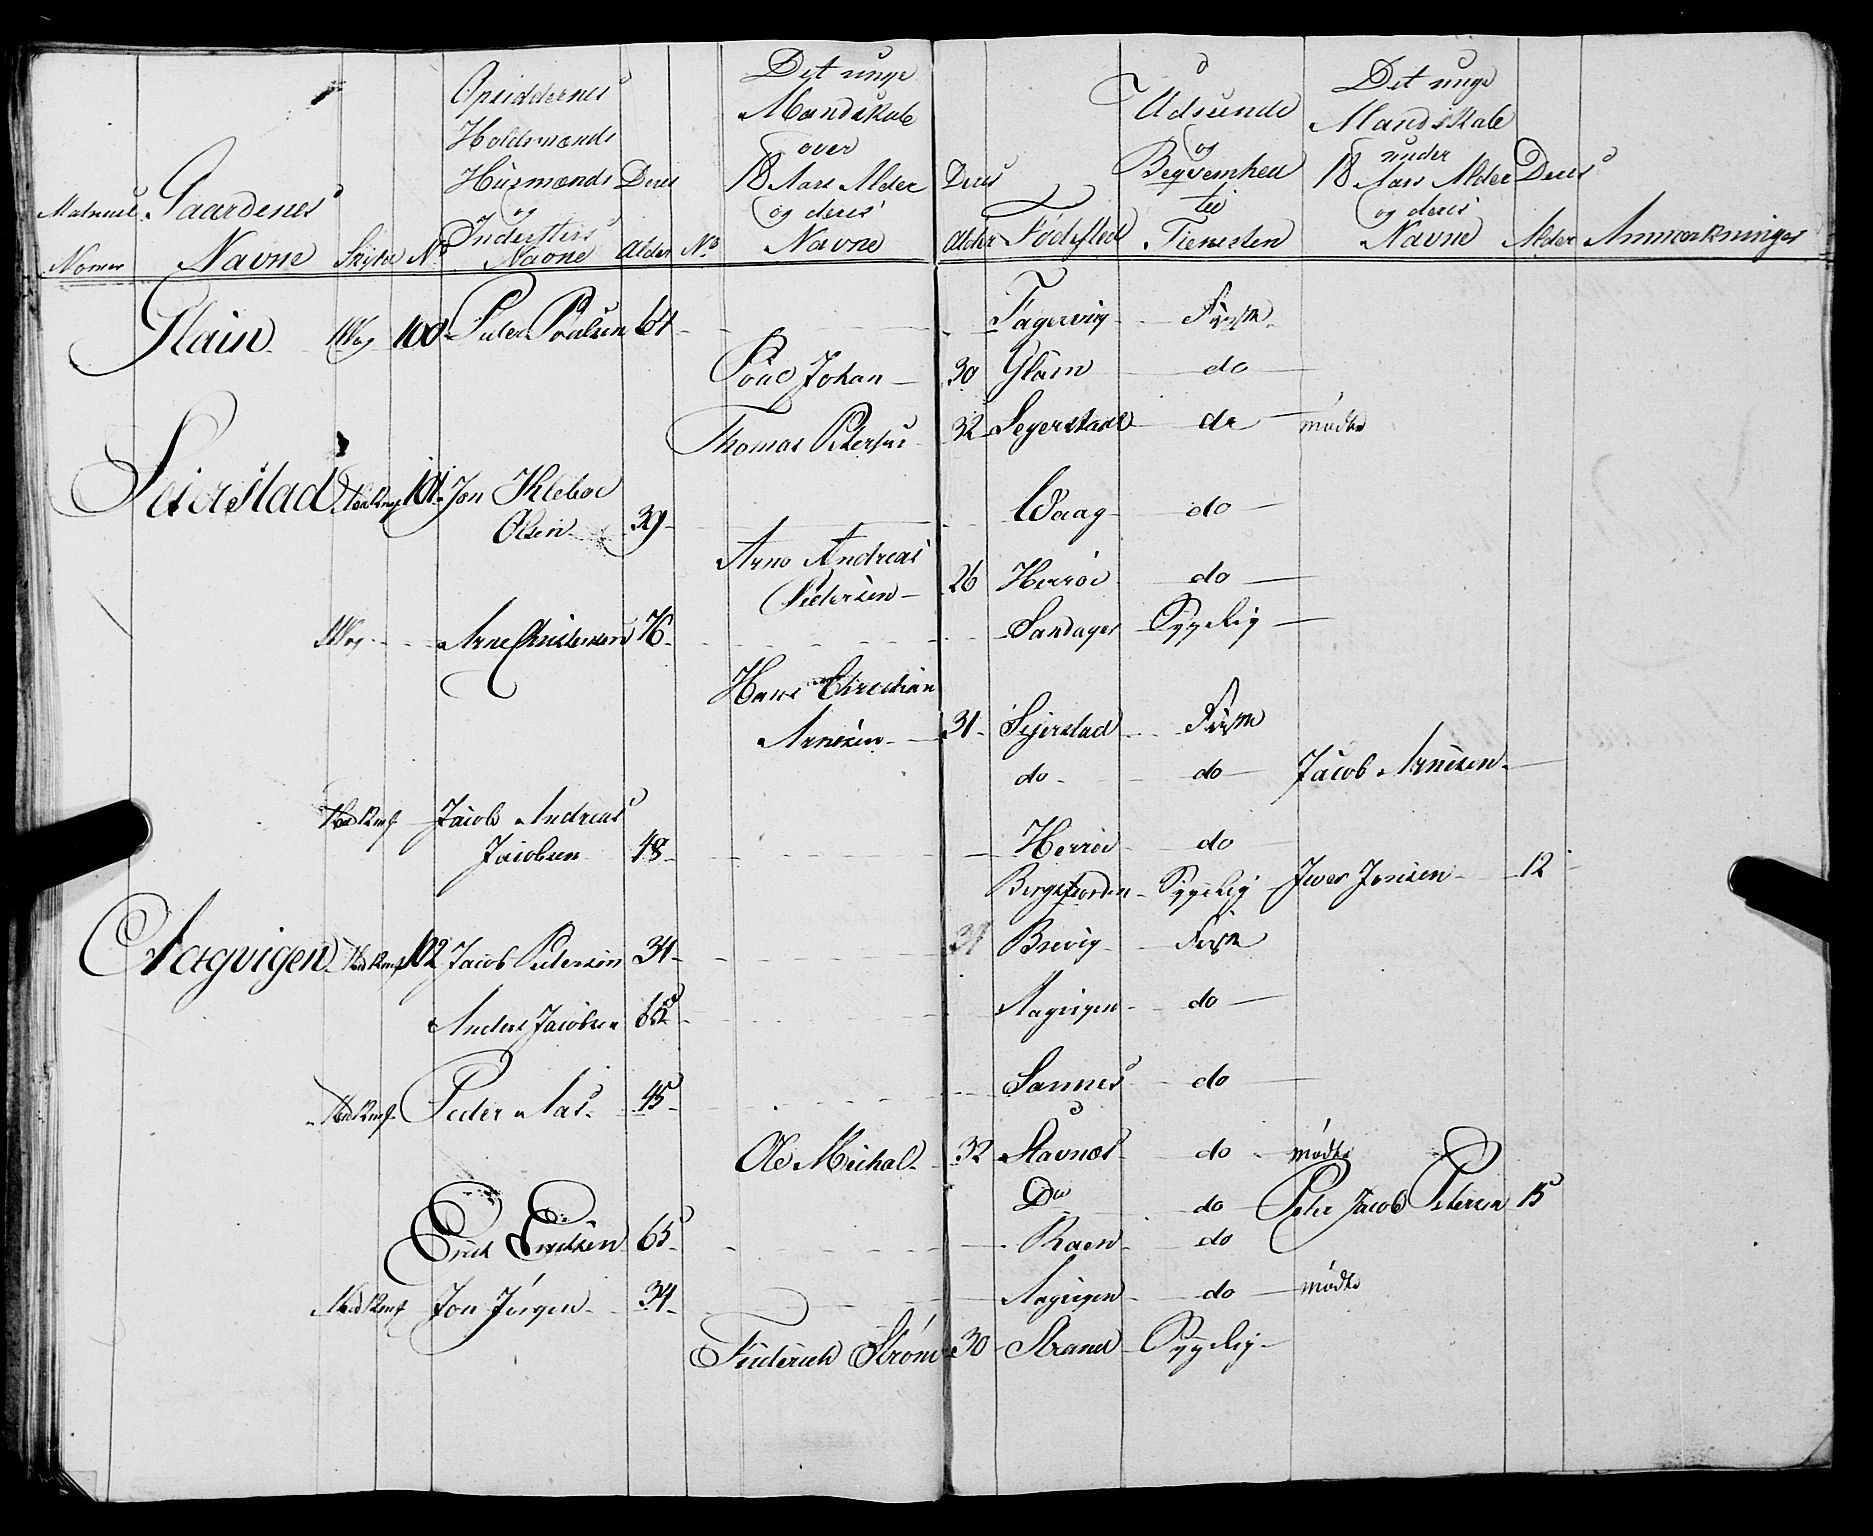 Matricul Nomer
Gaardenes Navne
Skyld
No
Opsiddernes Holdsmænds Husmænds og Indersters Navne
Deres Alder
No
Det unge Mandskab over 18 Aars Alder og deres Navne
Deres Alder
Fødested
Udseende og Beqvemhed til Tienesten
Det unge Mandskab under 18 Aars Alder og deres Navne
Deres Alder
Anmærkninger
Glain 100 Peder Poulsen 64 Fagervig Frisk
Poul Johan 30 Glain do
Thomas Petersen 32 Segerstad do mødte
Seierstad 101 Jon Kleboe
Olsen 39 Waag do
Arno Andreas
Pedersen 26 Herrøe do
Arne Christensen 76 Sandager Sygelig
Hans Christian
Arnesen 31 Sejerstad Frisk
do do Jacob Arnesen
Jacob Andreas
Jacobsen 48 Herrøe do
Bergsfiorden Sygelig Iver Jensen 12
Aagvigen 102 Jacob Pedersen 34 31 Brevig Frisk
Anders Jacobsen 65 Aagvigen do
Peder Aas 45 Sannes do
Ole Michal 32 Stavnes do mødte
Do do Peter Jacob Petersen 15
Erich Erichsen 65 Raen do
Jon Jørgen 34 Aagvigen do mødte
Friderich Strøm 30 Strand Sygelig